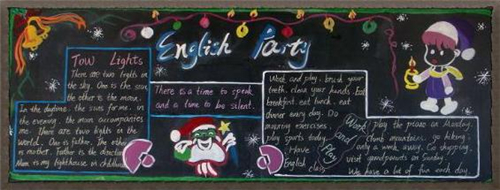 English Party
Tow Lights
There are two lights in
the sky. One is the sun,
the other is the moon.
In the daytime, the suns for me, in
the evening, the moon accompanies
me. There are two lights in the
world. One is father. The other
is mother. Father is the
Mom is my lighthouse in childhood
There is a time to speak
and a time to be silent.
Work and play, brush your
teeth, clean your hands. Eat
breakfast, eat lunch, eat
dinner every day. Do
morning exercises,
play sports today.
Have
English class
Work
and
Play
play the piano on Monday.
climb mountains, go hiking
only a week away. Go shopping,
visit grandparents on Sunday.
We have a lot of fun each day.